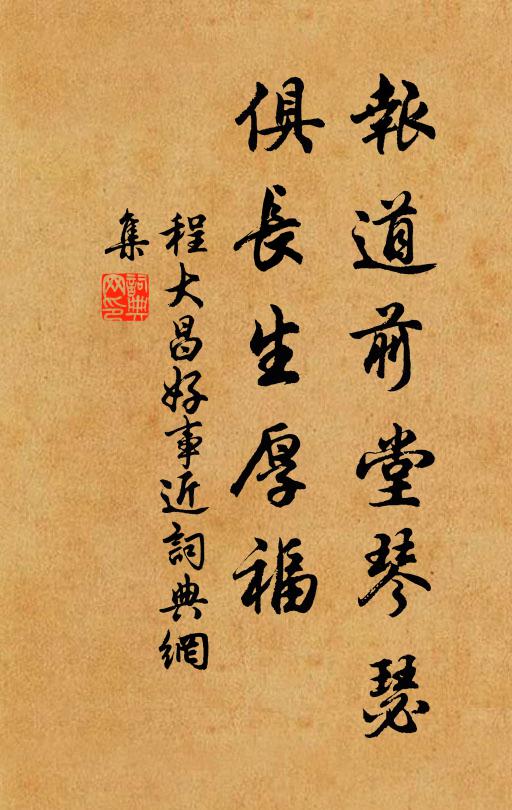 報道前堂琴瑟
俱長生厚福
程大昌好事近詞典網
集
詞典
网印